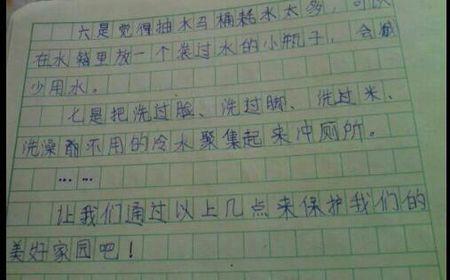 六是觉得抽水马桶耗水太多,可以
在水箱里放一个装过水的小瓶子,会减
少用水。
七是把洗过脸、洗过脚、洗过米、
洗澡前不用的冷水聚集起来冲厕所。
……
让我们通过以上几点来保护我们的
美好家园吧!